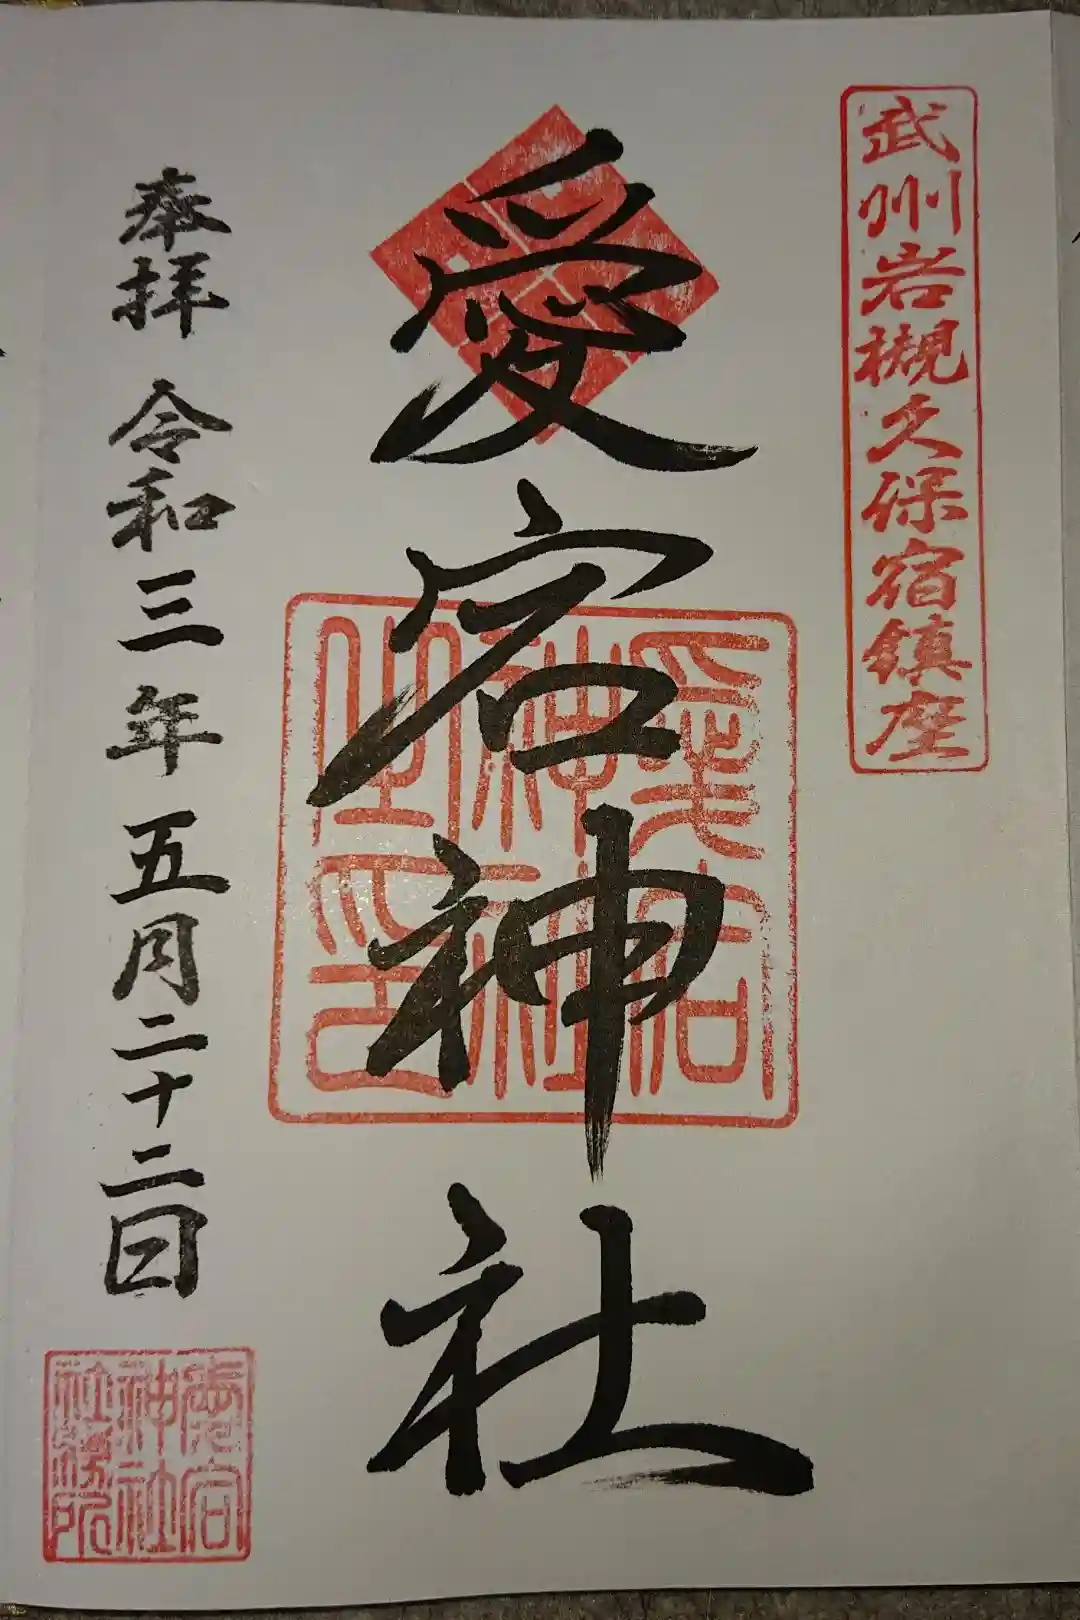 武州岩槻久保宿鎮座
愛宕神社
愛宕
神社
之印
奉拝 令和三年五月二十二日
愛宕
神社
社務所